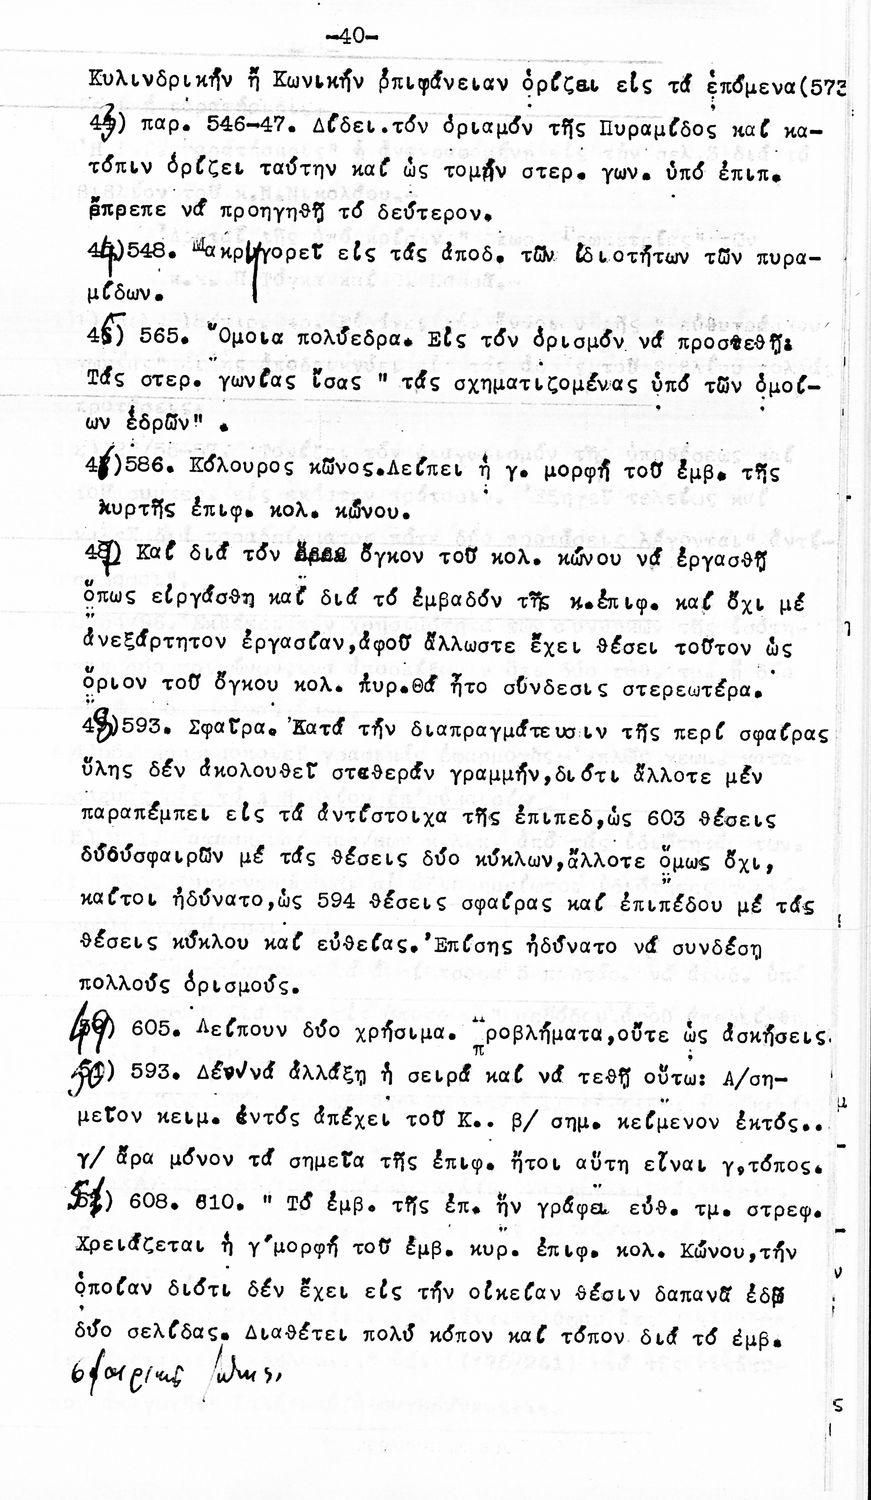 -40-
Κυλινδρικήν ἤ Κωνικήν ἐπιφάνειαν ὁρίζει εἰς τά ἑπόμενα(573
43) παρ. 546-47. Δίδει.τόν ὁριαμόν τῆς Πυραμίδος καί κα-
τόπιν ὁρίζει ταύτην καί ὡς τομήν στερ. γων. ὑπό ἐπιπ.
ἔπρεπε νά προηγηθῇ τό δεύτερον.
44)548. Μακρηγορεῖ εἰς τάς ἀποδ. τῶν ἰδιοτήτων τῶν πυρα-
μίδων.
45) 565. Ὅμοια πολύεδρα. Εἰς τόν ὁρισμόν νά προστεθῇ:
Τάς στερ. γωνίας ἴσας " τάς σχηματιζομένας ὑπό τῶν ὁμοί-
ων ἑδρῶν" .
46)586. Κόλουρος κῶνος.Λείπει ἡ γ. μορφή τοῦ ἐμβ. τῆς
κυρτῆς ἐπιφ. κολ. κώνου.
47) Καί διά τόν ὄγκον τοῦ κολ. κώνου νά ἐργασθῇ
ὅπως εἰργάσθη καί διά τό ἐμβαδόν τῆς κ.ἐπιφ. καί ὄχι μέ
ἀνεξάρτητον ἐργασίαν,ἀφοῦ ἄλλωστε ἔχει θέσει τοῦτον ὡς
ὅριον τοῦ ὄγκου κολ. πυρ.Θά ἦτο σύνδεσις στερεωτέρα.
48)593. Σφαῖρα. Κατά τήν διαπραγμάτευσιν τῆς περί σφαίρας
ὕλης δέν ἀκολουθεῖ σταθεράν γραμμήν,διότι ἄλλοτε μέν
παραπέμπει εἰς τά ἀντίστοιχα τῆς ἐπιπεδ,ὡς 603 θέσεις
δύδύσφαιρῶν μέ τάς θέσεις δύο κύκλων,ἄλλοτε ὅμως ὄχι,
καίτοι ἠδύνατο,ὡς 594 θέσεις σφαίρας καί ἐπιπέδου μέ τάς
θέσεις κύκλου καί εὐθείας.Ἐπίσης ἠδύνατο νά συνδέσῃ
πολλούς ὁρισμούς.
49) 605. Λείπουν δύο χρήσιμα. προβλήματα,οὔτε ὡς ἀσκήσεις.
50) 593. Δέν νά ἀλλάξῃ ἡ σειρά καί νά τεθῇ οὕτω: Α/ση-
μεῖον κειμ. ἐντός ἀπέχει τοῦ Κ.. β/ σημ. κείμενον ἐκτός..
γ/ ἄρα μόνον τά σημεῖα τῆς ἐπιφ. ἤτοι αὕτη εἶναι γ,τόπος.
51) 608. 610. " Τό ἐμβ. τῆς ἐπ. ἥν γράφει εὐθ. τμ. στρεφ.
Χρειάζεται ἡ γ´μορφή τοῦ ἐμβ. κυρ. ἐπιφ. κολ. Κώνου,τήν
ὁποίαν διότι δέν ἔχει εἰς τήν οἰκείαν θέσιν δαπανᾶ ἐδῶ
δύο σελίδας. Διαθέτει πολύ κόπον καί τόπον διά τό ἐμβ.
σφαιρικῆς